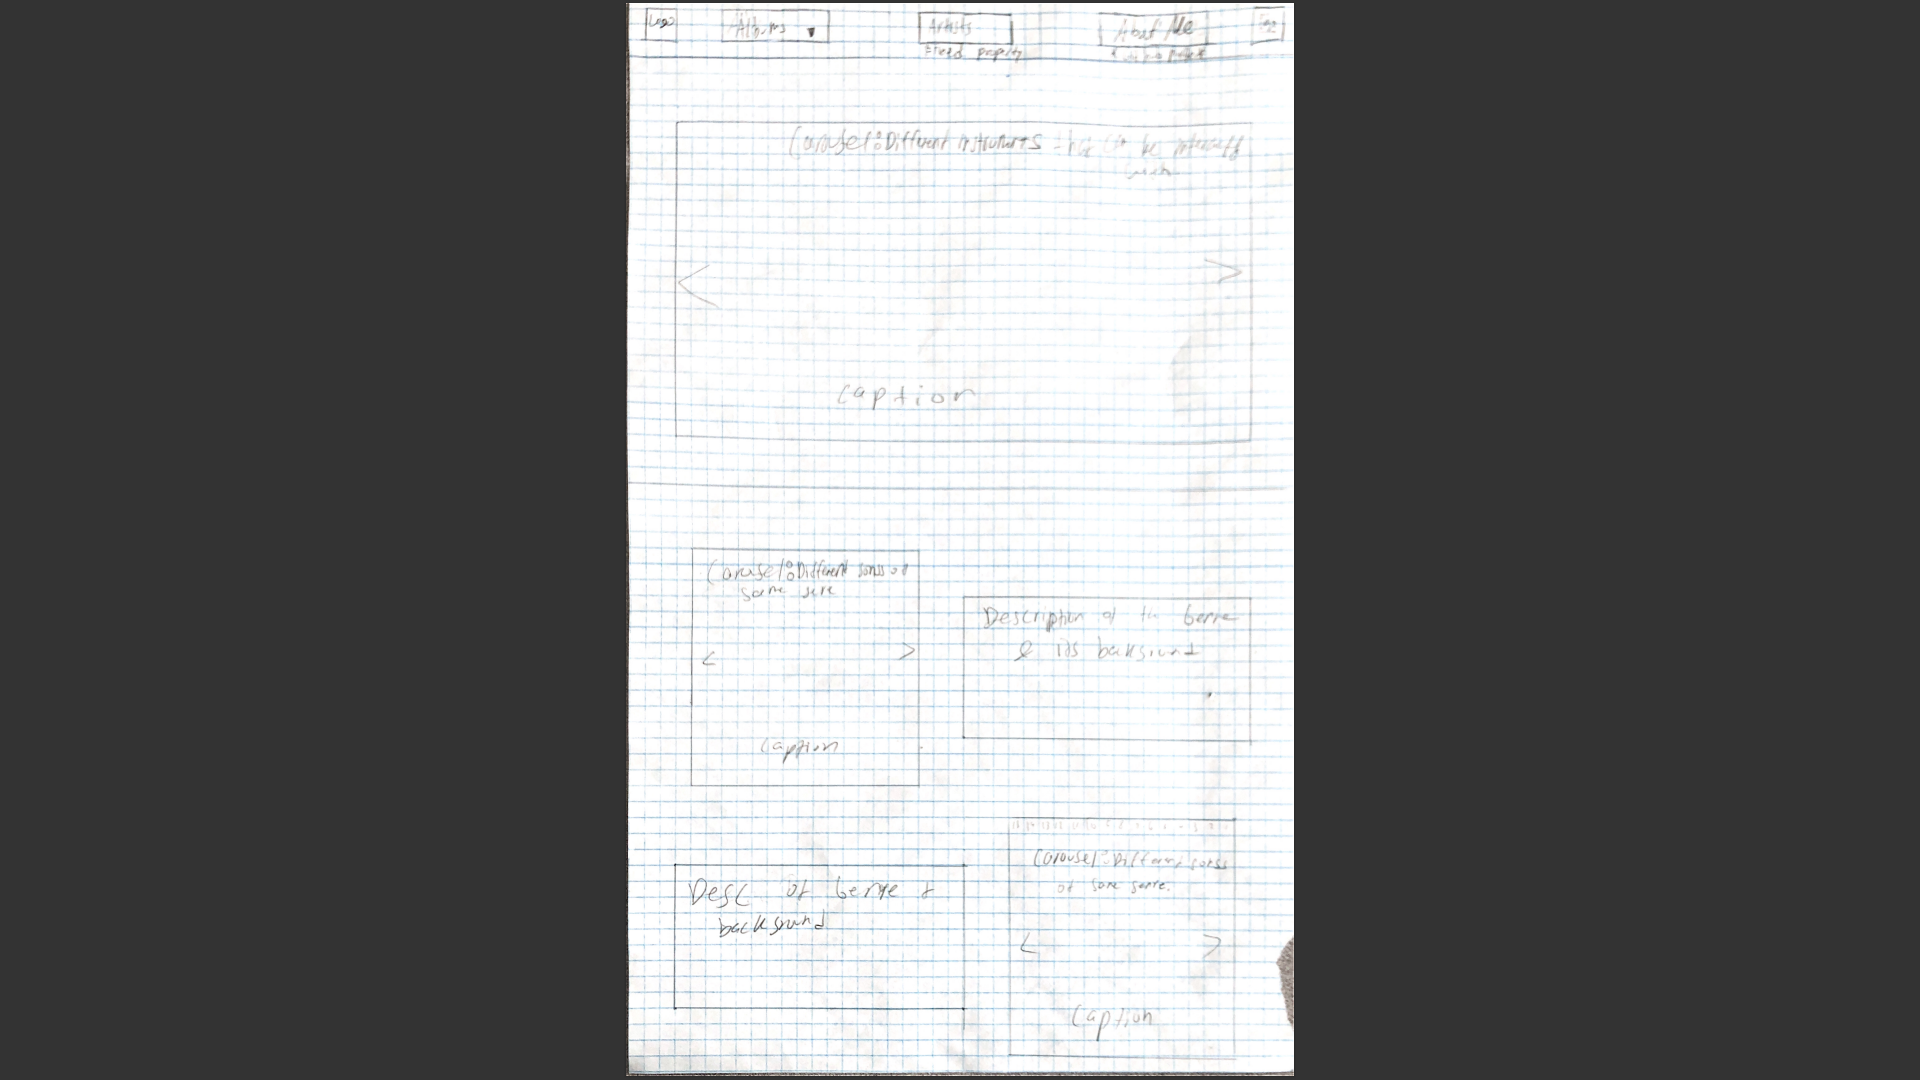 Logo
Albums
Artists
About Me
Fixed property
Carousel: Different instruments that can be
<
>
Caption
Carousel: Different songs of
same genre
<
>
Caption
Description of the Genre
& its background
Desc of Genre &
background
Carousel: Different songs
of same genre.
<
>
Caption